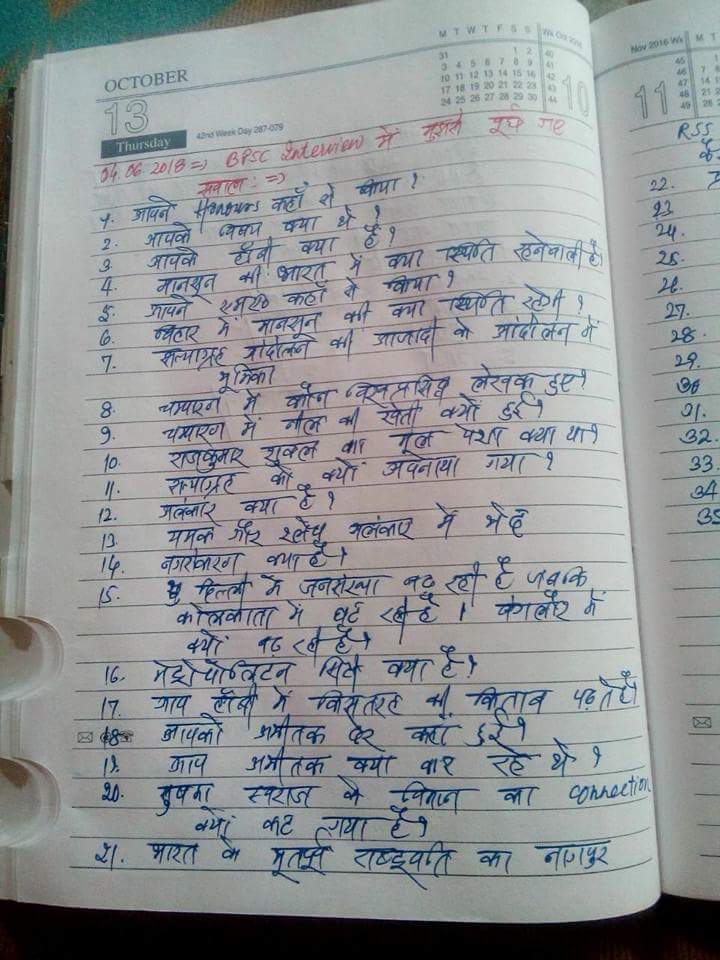 OCTOBER
13
Thursday
42nd Week Day 287-079
M T W T F S S Wk Oct 2016
31 1 2 40
3 4 5 6 7 8 9 41
10 11 12 13 14 15 16 42
17 18 19 20 21 22 23 43
24 25 26 27 28 29 30 44
10
04.06.2018 => BPSC Interview में मुझसे पूछे गए
सवाल : =>
1. आपने Honours कहाँ से किया?
2. आपके विषय क्या थे?
3. आपकी हॉबी क्या है?
4. मानसून की भारत में क्या स्थिति रहनेवाली है।
5. आपने एमए कहाँ से किया?
6. बिहार में मानसून की क्या स्थिति रहेगी?
7. सत्याग्रह आंदोलन की आजादी के आंदोलन में
भूमिका
8. चम्पारण में कौन विश्वप्रसिद्ध लेखक हुए?
9. चम्पारण में नील की खेती क्यों हुई?
10. राजकुमार शुक्ल का मूल पेशा क्या था?
11. सत्याग्रह को क्यों अपनाया गया?
12. अलंकार क्या है?
13. यमक और श्लेष अलंकार में भेद
14. नगरीकरण क्या है?
15. दिल्ली में जनसंख्या बढ़ रही है जबकि
कोलकाता में घट रही है। बंगलौर में
क्यों बढ़ रही है?
16. मेट्रोपोलिटन सिटी क्या है?
17. आप हॉबी में किस तरह की किताब पढ़ते हैं।
18. आपको अभीतक देर कहाँ हुई?
19. आप अभीतक क्या कर रहे थे?
20. सुषमा स्वराज के विमान का connection
क्यों कट गया है?
21. भारत के भूतपूर्व राष्ट्रपति का नागपुर
Nov 2016 Wk M T
45
46 7
47
48 21
49 28
11
RSS
22.
23
24.
25.
26.
27.
28.
29.
30
31.
32.
33.
34
35